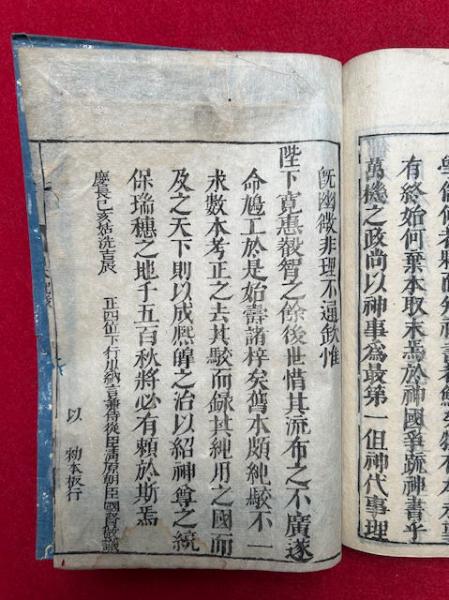 有終始何棄本取末焉於神國爭疏神書乎
萬機之政尚以神事爲最第一但神代事理
既幽微非理不通欽惟
陛下寛惠叡智之餘後世惜其流布之不廣遂
命鳩工於是始壽諸梓矣舊本頗純駁不一
求數本考正之去其駁而録其純用之國而
及之天下則以成熈皥之治以紹神尊之統
保瑞穗之地于五百秋將必有賴於斯焉
慶長己亥姑洗吉辰 正四位下行少納言兼侍從臣清原朝臣國賢敬識
以 勅本板行